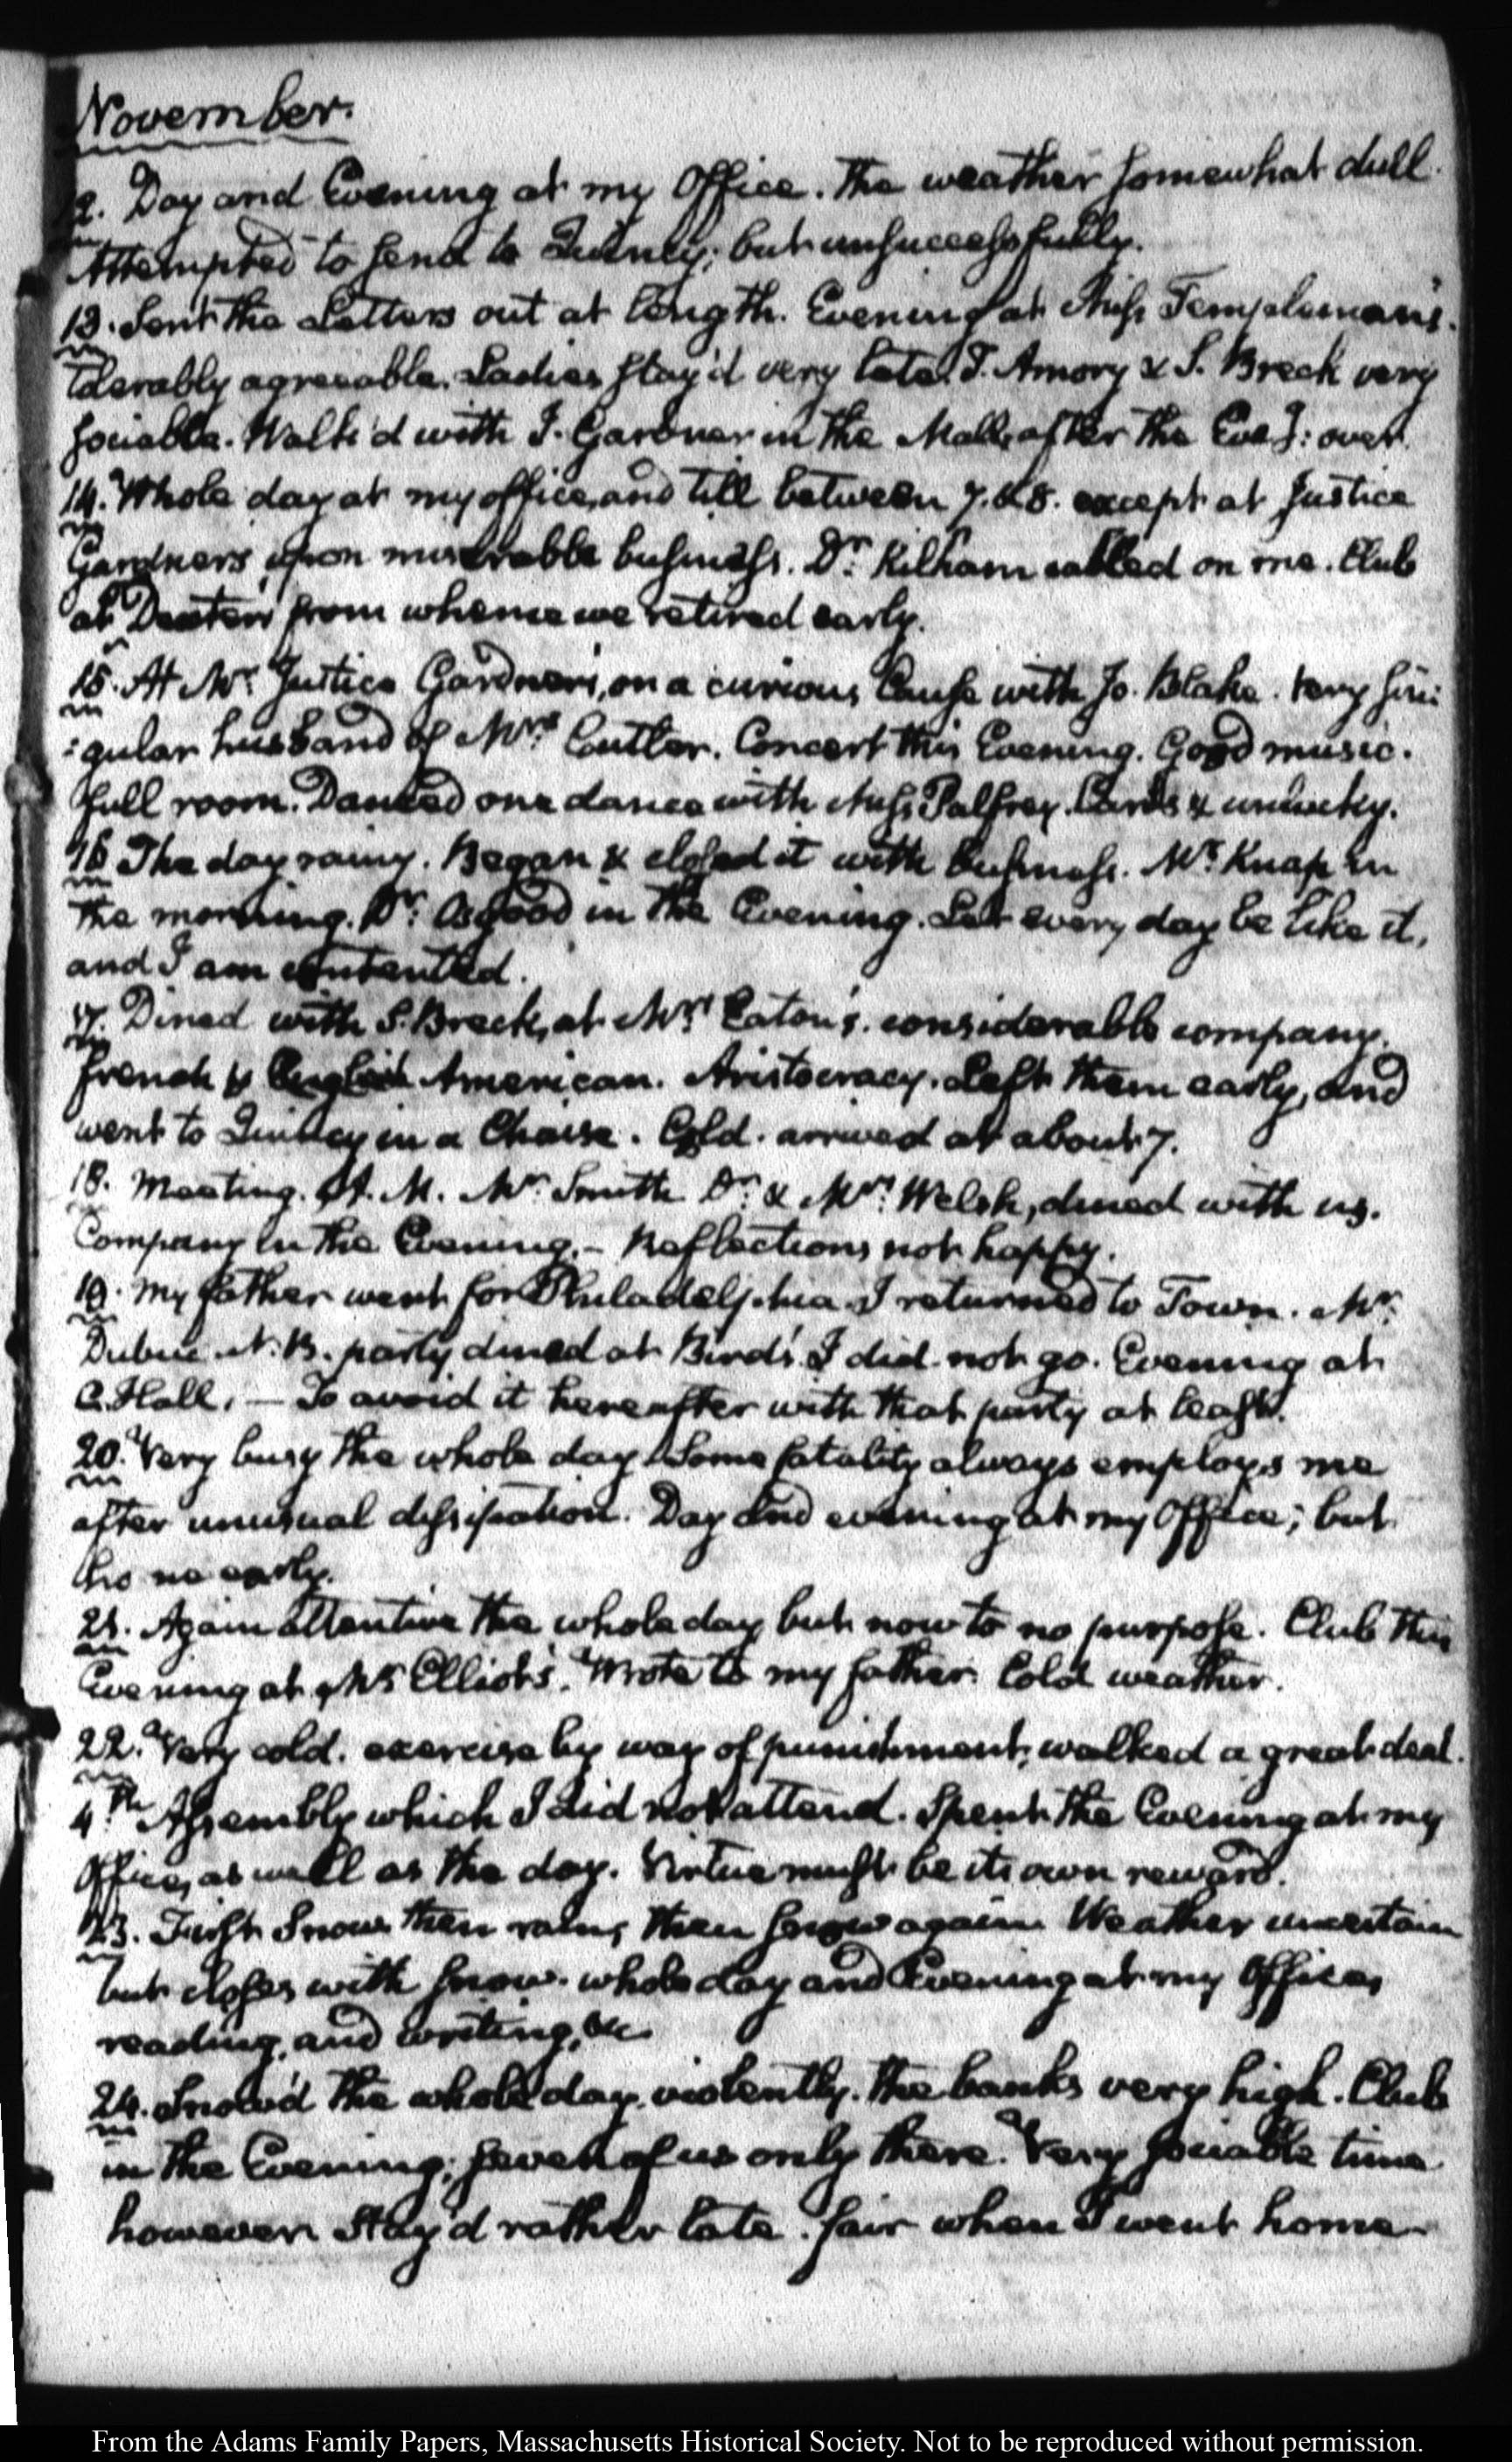 November.
12. Day and Evening at my Office. The weather somewhat dull.
Attempted to send to Quincy; but unsuccessfully.
13. Sent the Letters out at length. Evening at Miss Templeman's.
tolerably agreeable. Ladies stay'd very late. T. Amory & S. Breck very
sociable. Walk'd with J. Gardner in the Mall, after the Eve.g: over.
14. Whole day at my office, and till between 7. & 8. except at Justice
Gardners upon miserable business. Dr. Kilham called on me. Club
at Dexters from whence we retired early.
15. At Mr. Justice Gardners, on a curious Cause with Jo. Blake. Very sin:
:gular husband of Mrs. Cutler. Concert this Evening. Good music.
full room. Danced one dance with Miss Palfrey. Cards & unlucky.
16 The day rainy. Began & closed it with business. Mr. Knap in
the morning. Dr. Osgood in the Evening. Let every day be like it,
and I am contented.
17. Dined with S. Breck, at Mrs. Eaton's. considerable company.
french & English American. Aristocracy. Left them early, and
went to Quincy in a Chaise. Cold. arrived at about 7.
18. Meeting. A. M. Mr. Smith Dr. & Mrs. Welsh, dined with us.
Company in the Evening. – Reflections not happy.
19. My father went for Philadelphia. I returned to Town. Mr.
N. B. party dined at Bird's. I did not go. Evening at
C. Hall, — To avoid it hereafter with that party at least.
20. Very busy the whole day. Some fatality always employs me
after unusual dissipation. Day and evening at my Office; but
no early.
21. Again attentive the whole day but now to no purpose. Club this
Evening at Mr Elliot's. Wrote to my father. Cold weather.
22. Very cold. exercise by way of punishment, walked a great deal.
4th. Assembly which I did not attend. Spent the Evening at my
Office, as well as the day. Virtue must be its own reward.
23. First Snow then rain, then snow again. Weather uncertain
but closes with snow. whole day and Evening at my Office,
reading, and writing, &c
24. Snow'd the whole day, violently. the banks very high. Club
in the Evening; seven of us only there. Very sociable time
however. Stay'd rather late. fair when I went home
From the Adams Family Papers, Massachusetts Historical Society. Not to be reproduced without permission.